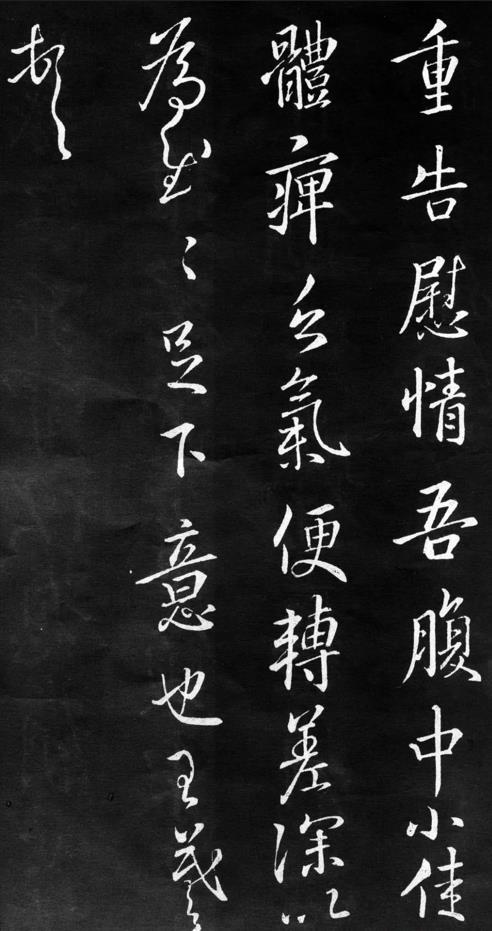 重告慰情吾腹中小佳
體痺乏氣便轉差深以
為慰〻足下意也王羲之
頓首